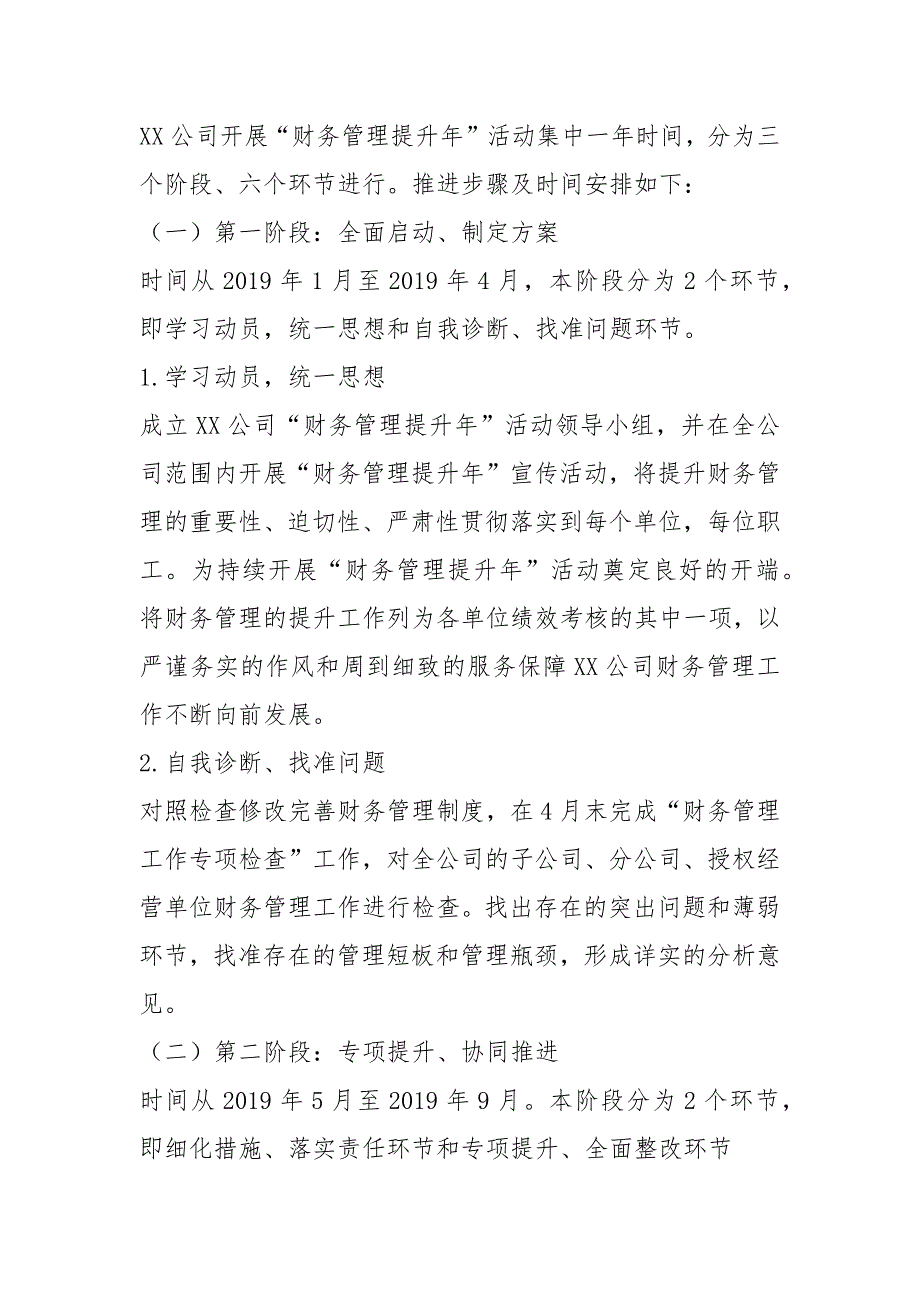 XX 公司开展“财务管理提升年”活动集中一年时间，分为三
个阶段、六个环节进行。推进步骤及时间安排如下：
（一）第一阶段：全面启动、制定方案
时间从 2019 年 1 月至 2019 年 4 月，本阶段分为 2 个环节，
即学习动员，统一思想和自我诊断、找准问题环节。
1.学习动员，统一思想
成立 XX 公司“财务管理提升年”活动领导小组，并在全公
司范围内开展“财务管理提升年”宣传活动，将提升财务管
理的重要性、迫切性、严肃性贯彻落实到每个单位，每位职
工。为持续开展“财务管理提升年”活动奠定良好的开端。
将财务管理的提升工作列为各单位绩效考核的其中一项，以
严谨务实的作风和周到细致的服务保障 XX 公司财务管理工
作不断向前发展。
2.自我诊断、找准问题
对照检查修改完善财务管理制度，在 4 月末完成“财务管理
工作专项检查”工作，对全公司的子公司、分公司、授权经
营单位财务管理工作进行检查。找出存在的突出问题和薄弱
环节，找准存在的管理短板和管理瓶颈，形成详实的分析意
见。
（二）第二阶段：专项提升、协同推进
时间从 2019 年 5 月至 2019 年 9 月。本阶段分为 2 个环节，
即细化措施、落实责任环节和专项提升、全面整改环节